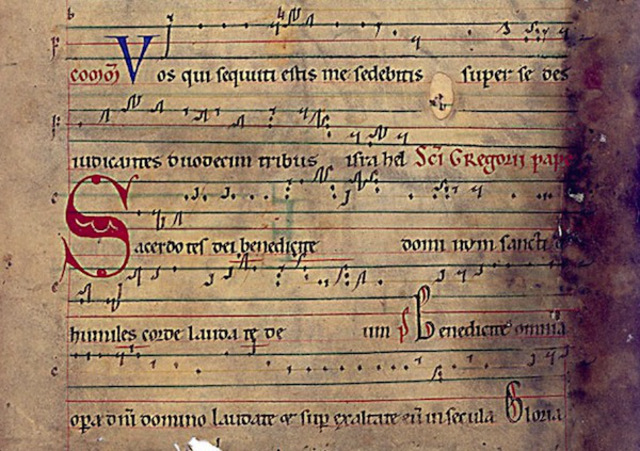 Vos qui sequuti estis me sedebitis super sedes
iudicantes duodecim tribus israhel Sc̄i Gregorii pape
Sacerdotes dei benedicite domi num sancti &
humiles corde lauda te de um p̄ Benedicite omnia
opera dn̄i domino laudate & sup exaltate eū in secula Gloria